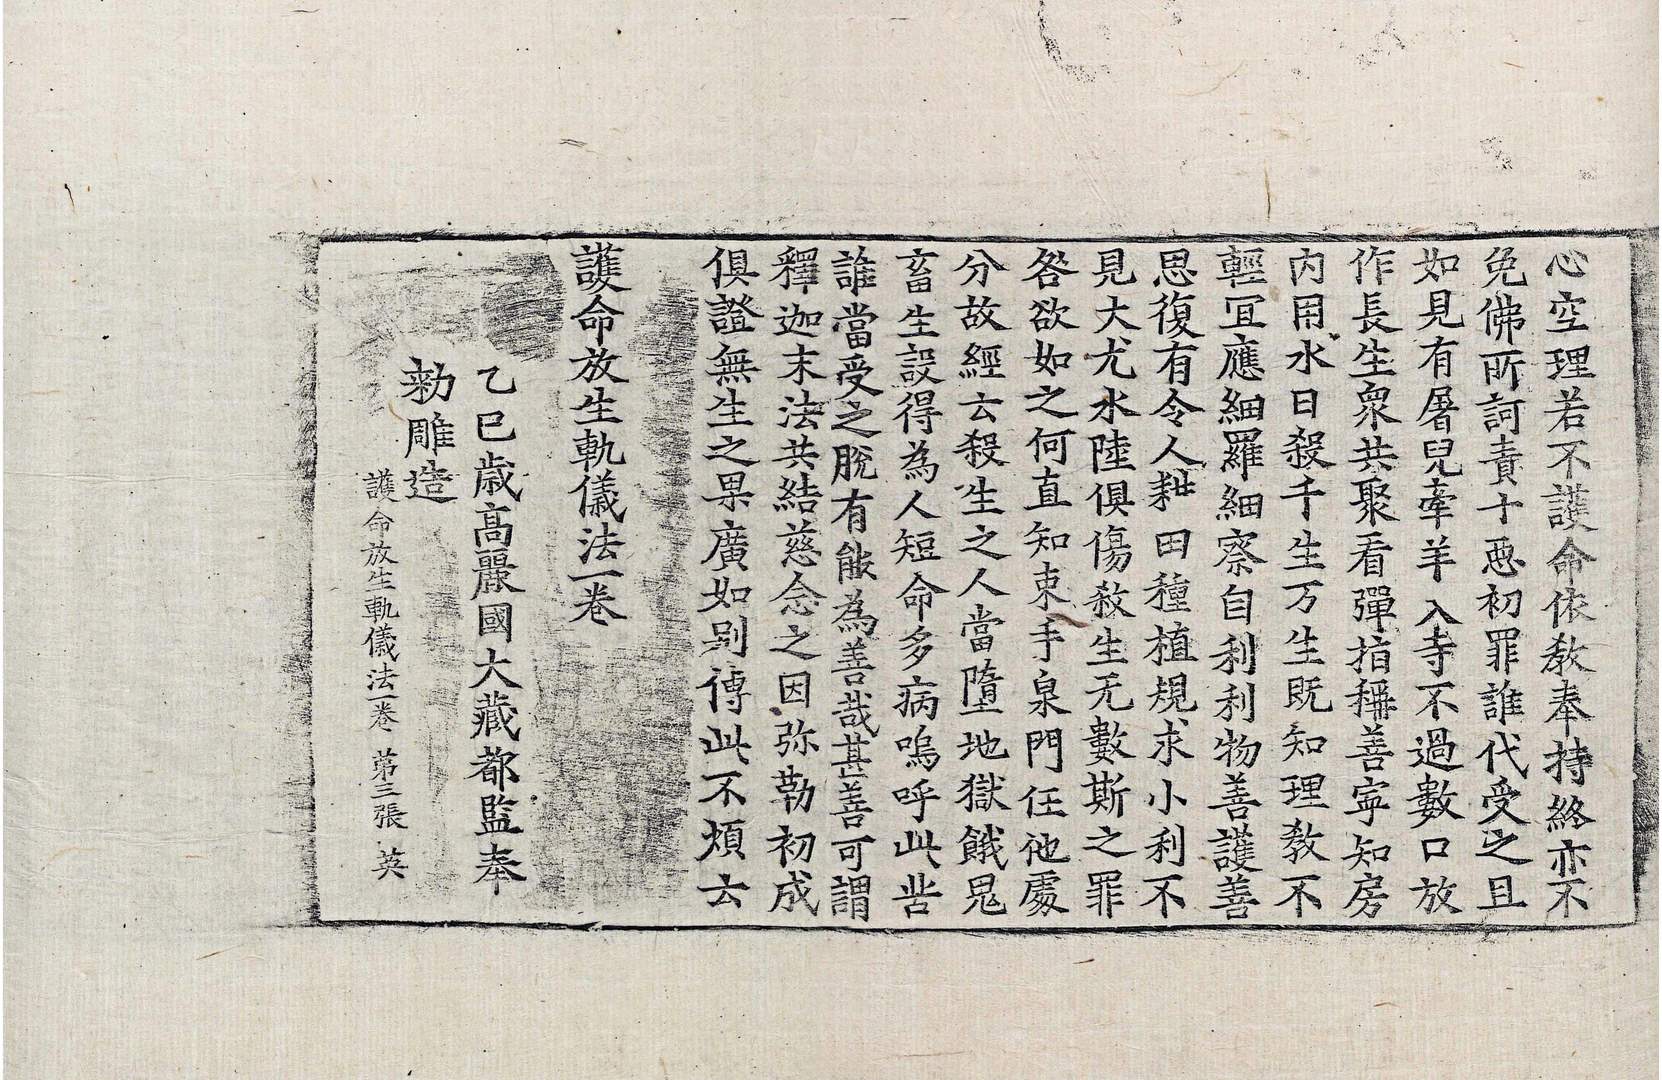 心空理若不護命依教奉持終亦不
免佛所訶責十惡初罪誰代受之且
如見有屠兒牽羊入寺不過數口放
作長生衆共聚看彈指稱善寧知房
内用水日殺千生万生既知理教不
輕冝應細羅細察自利利物善護善
思復有令人耕田種植規求小利不
見大尤水陸俱傷殺生无數斯之罪
咎欲如之何直知束手泉門任他處
分故經云殺生之人當墮地獄餓鬼
畜生設得為人短命多病嗚呼此苦
誰當受之脫有能為善哉甚善可謂
釋迦末法共結慈念之因弥勒初成
俱證無生之果廣如别傳此不煩云
護命放生軌儀法一卷
乙巳歲高麗國大藏都監奉
勑雕造
護命放生軌儀法一卷 第三張 英